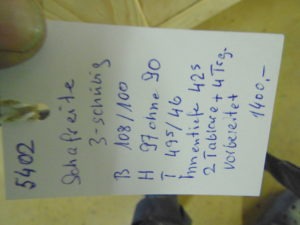 5402
Schafreite
3-schübig
B 108/100
H 97 ohne 90
T 495/46
Innentiefe 425
2 Tablare + 4 Trg.
vorbereitet
1400.-